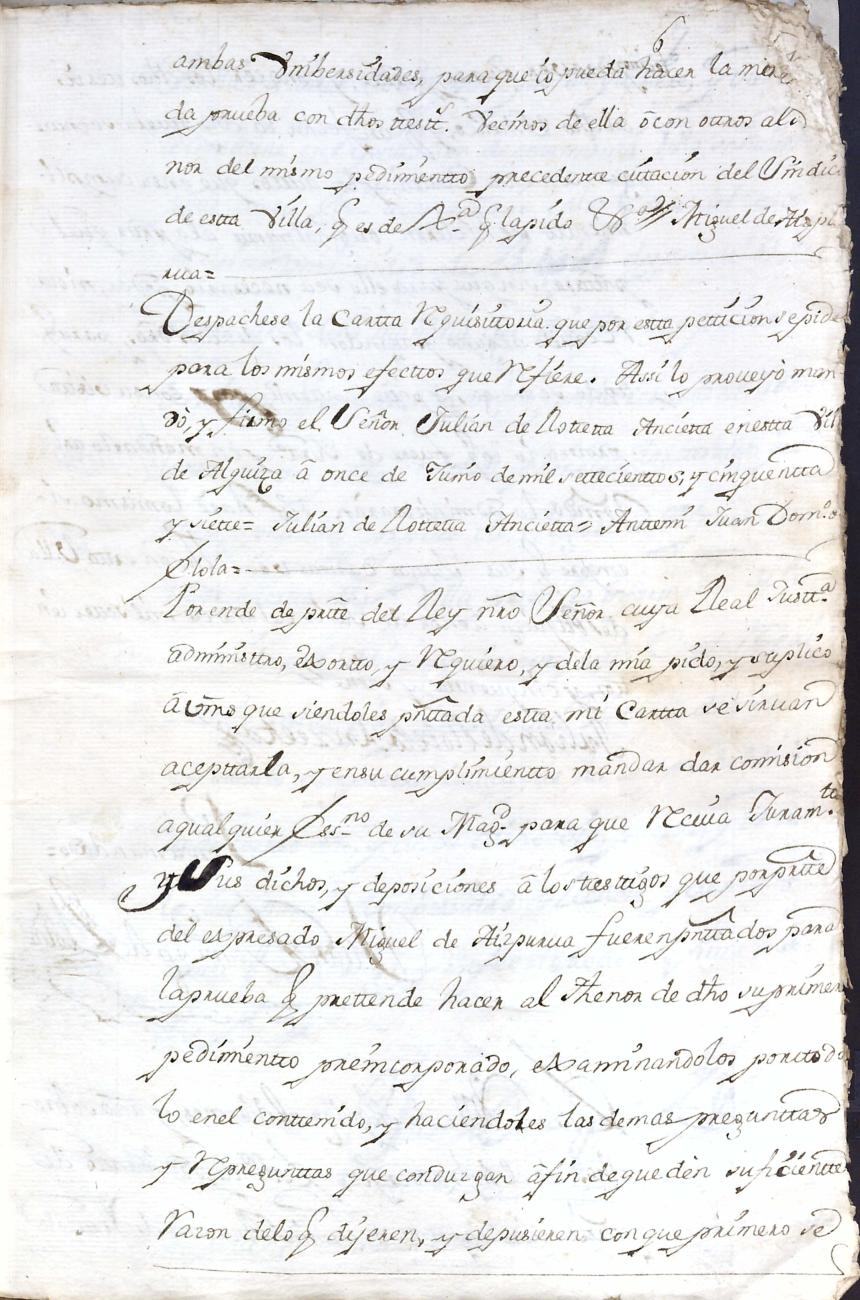 6
ambas Vnibersidades, para que io pueda hacer la
da prueba con dhos testt.s Vecinos de ella ô con ottros al
nor del mismo pedimentto precedentte cittacion del Sindic
de estta Villa, q es de q la pido &.ª Miguel de Aizpu
rua=
Despachese la Cartta Rquisittoria que por estta petticion se pide
para los mismos efecttos que Rfiere. Assi lo proveyò man
dò, y firmo el Señor Julian de Rottetta Ancietta en estta Vil
de Alquiza â once de Junio de mil settecienttos, y cinquentta
y siette= Julian de Rottetta Ancietta= Anttemi Juan Dom.o
Olola=
Por ende de prtte del Rey nrõ Señor cuya Real Justt.ª
âdministtro, eXortto, y Rquiero, y de la mia pido, y suplico
â vms que siendoles pnttada estta mi Cartta se siruan
acepttarla, y en su cumplimientto mandar dar comision
a qual quier Ess.no de su Mag.d para que Rciua Juram.to
y Sus dichos, y deposiciones â los testtigos que por prtte
del expresado Miguel de Aizpurua fueren pnttados para
la prueba q prettende hacer al thenor de dho su primer
pedimientto preincorporado, eXaminandolos por ttodo
lo en el conttenido, y haciendoles las demas preguntas
y Rpregunttas que conduzgan âfin de que dèn suficientte
razon de lo q dijeren, y depusieren con que primero se